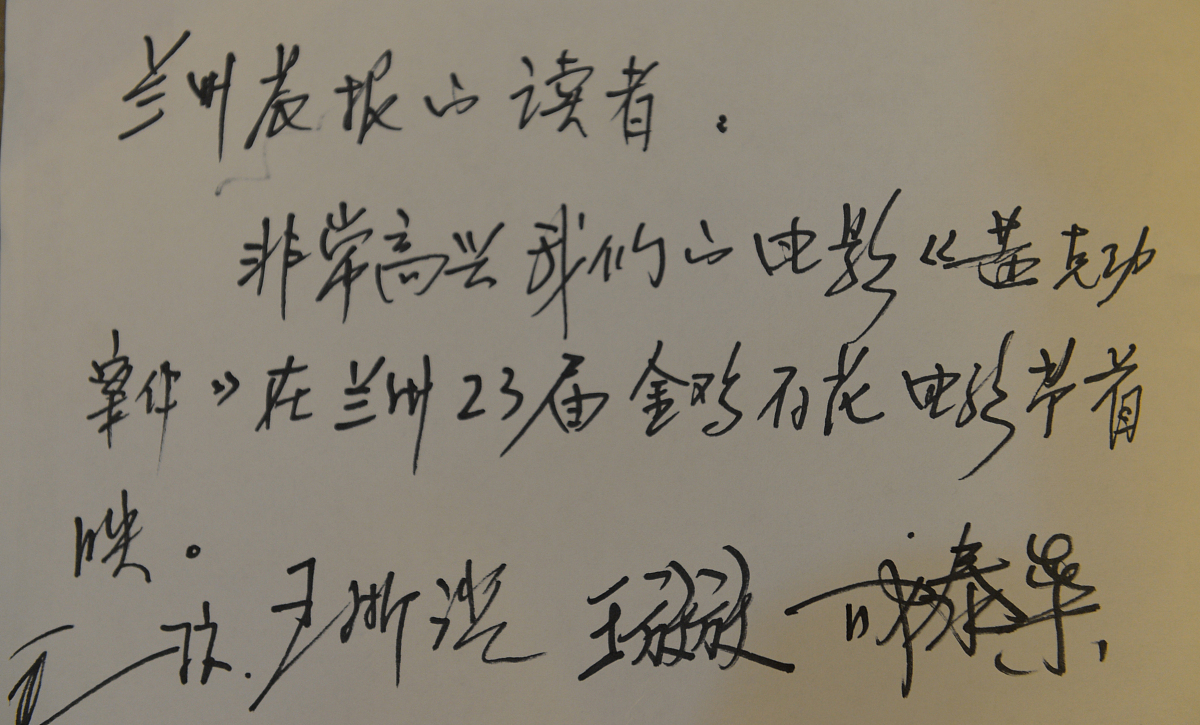 兰州晨报的读者：
非常高兴我们的电影《黄克功
案件》在兰州23届金鸡百花电影节首
映。
王